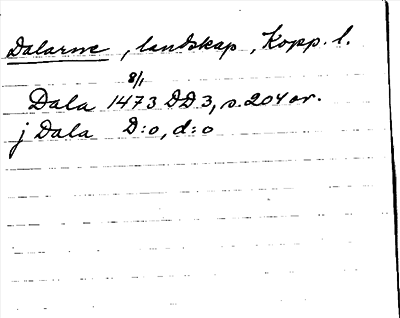 Dalarne, landskap, Kopp. l.
8/1
Dala 1473 DD3, s. 204 or.
j Dala D:o, d:o